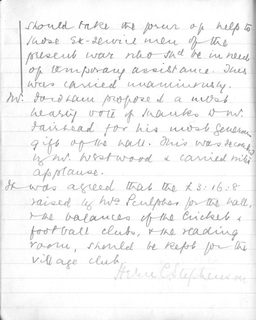 should take the form of help to
those Ex-Service men of the
present war who shd be in need
of temporary assistance. This
was carried unanimously.
Mr. Fordham proposed a most
hearty vote of thanks to Mr.
Fairhead for his most generous
gift of the hall. This was seconded
by Mr. Westwood & carried with
applause.
It was agreed that the £3:16:8
raised by Mrs Sculpher for the hall,
& the balances of the Cricket &
football clubs, & the reading
room, should be kept for the
village club.